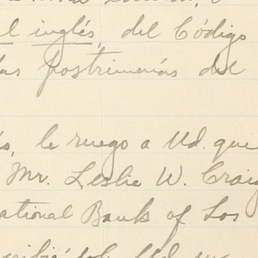 l inglés, del Código
las postrimerías del
le ruego a Ud. que
Mr. Leslie W. Craig
ational Bank of Los